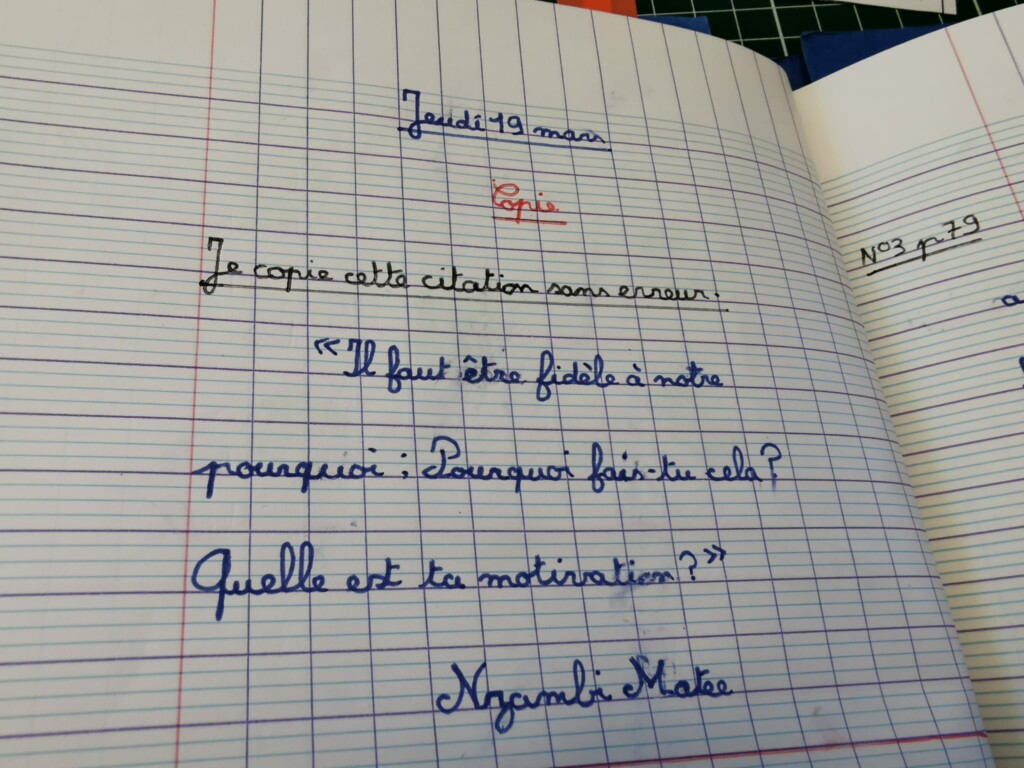 Jeudi 19 mars
Copie
Je copie cette citation sans erreur.
« Il faut être fidèle à notre
pourquoi ; Pourquoi fais-tu cela ?
Quelle est ta motivation ? »
Nzambi Matee
N°3 p.79
a